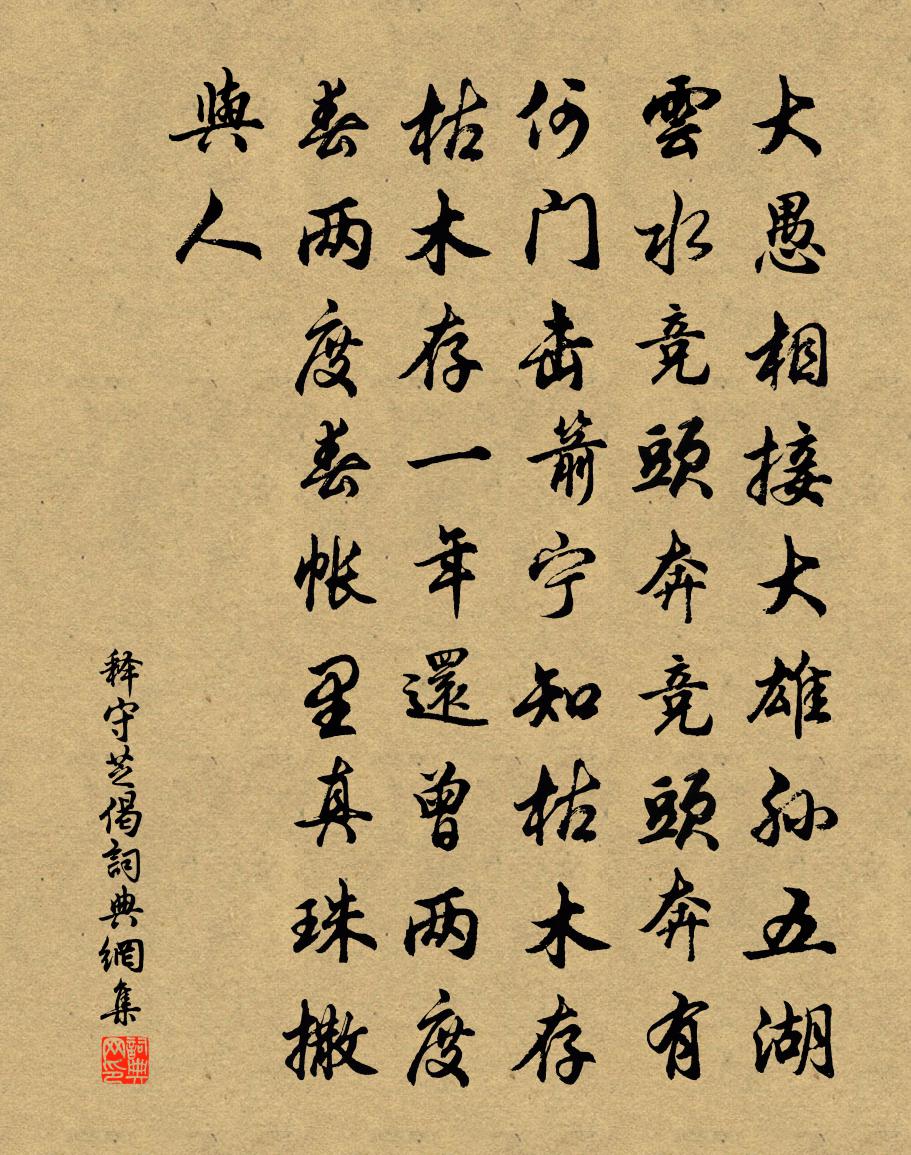 大愚相接大雄孙五湖
雲水竞頭奔竞頭奔有
何门击箭宁知枯木存
枯木存一年還曾两度
春两度春帐里真珠撒
與人
释守芝偈詞典網集
詞典
网印